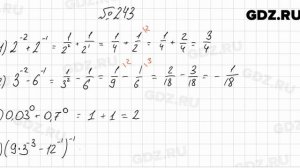 № 243
GDZ.RU
1) 2⁻² + 2⁻¹ = 1/2² + 1/2¹ = 1/4 + 1/2 ^(·2) = 1/4 + 2/4 = 3/4
2) 3⁻² - 6⁻¹ = 1/3² - 1/6 = 1/9 ^(·2) - 1/6 ^(·3) = 2/18 - 3/18 = - 1/18
) 0,03⁰ + 0,7⁰ = 1 + 1 = 2
) (9·3⁻³ - 12⁻¹)⁻¹
GDZ.RU